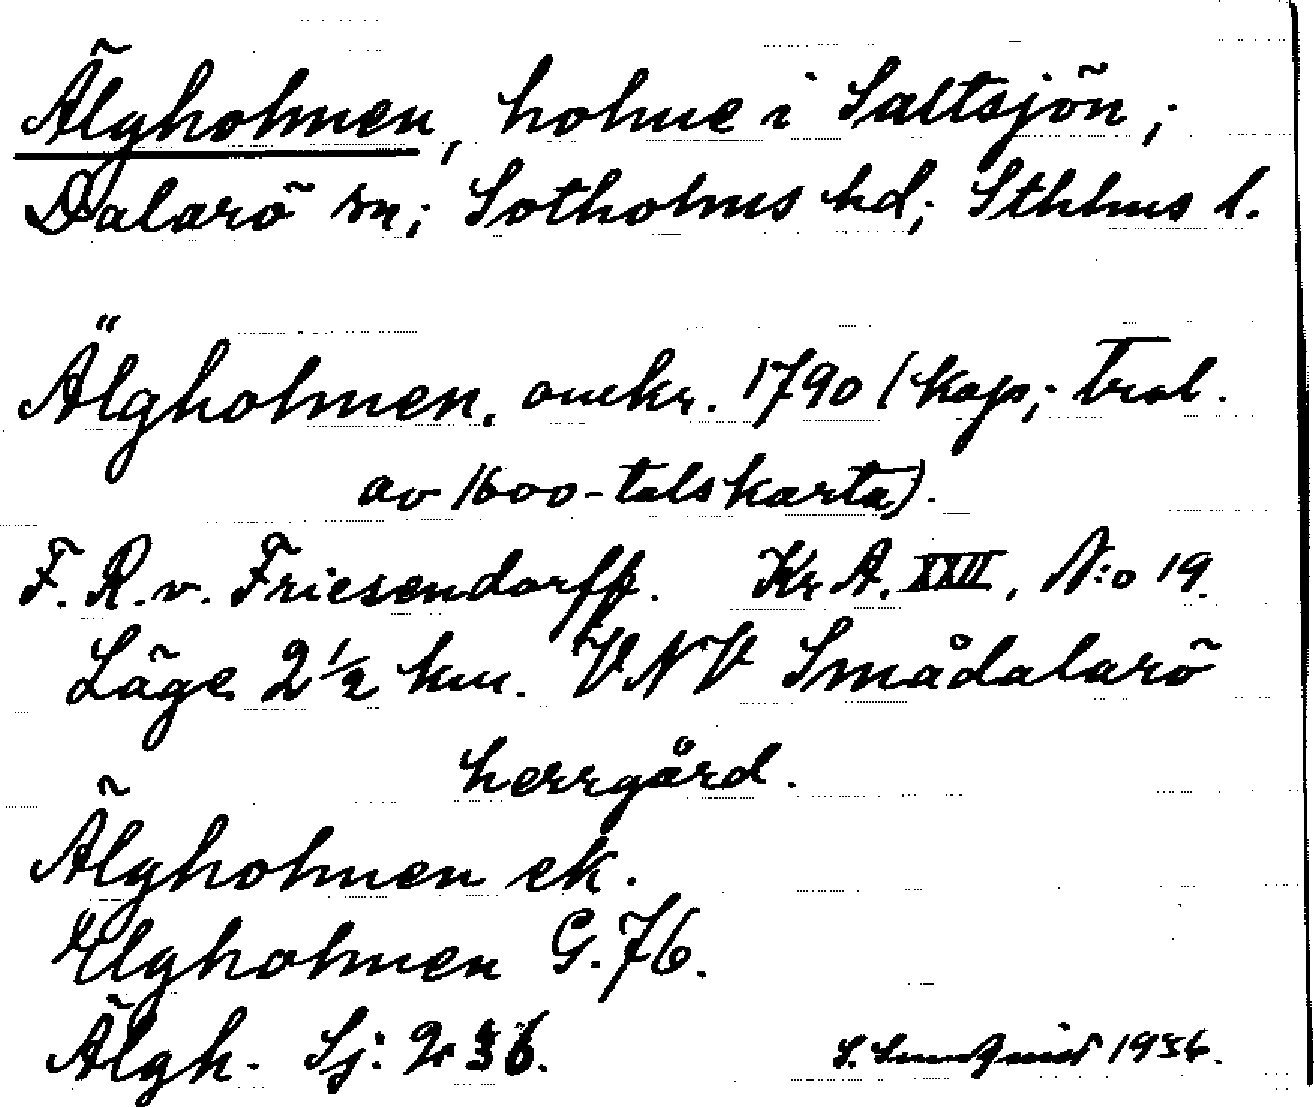 Älgholmen, holme i Saltsjön;
Dalarö sn; Sotholms hd; Sthlms l.
Älgholmen. omkr. 1790 (kop; trol.
av 1600-talskarta).
F. R. v. Friesendorff. Kr A. XXII, N:o 19.
Läge 2½ km. VNV Smådalarö
herrgård.
Älgholmen ek.
Elgholmen G. 76.
Älgh. Sj: 236.
S. 1936.